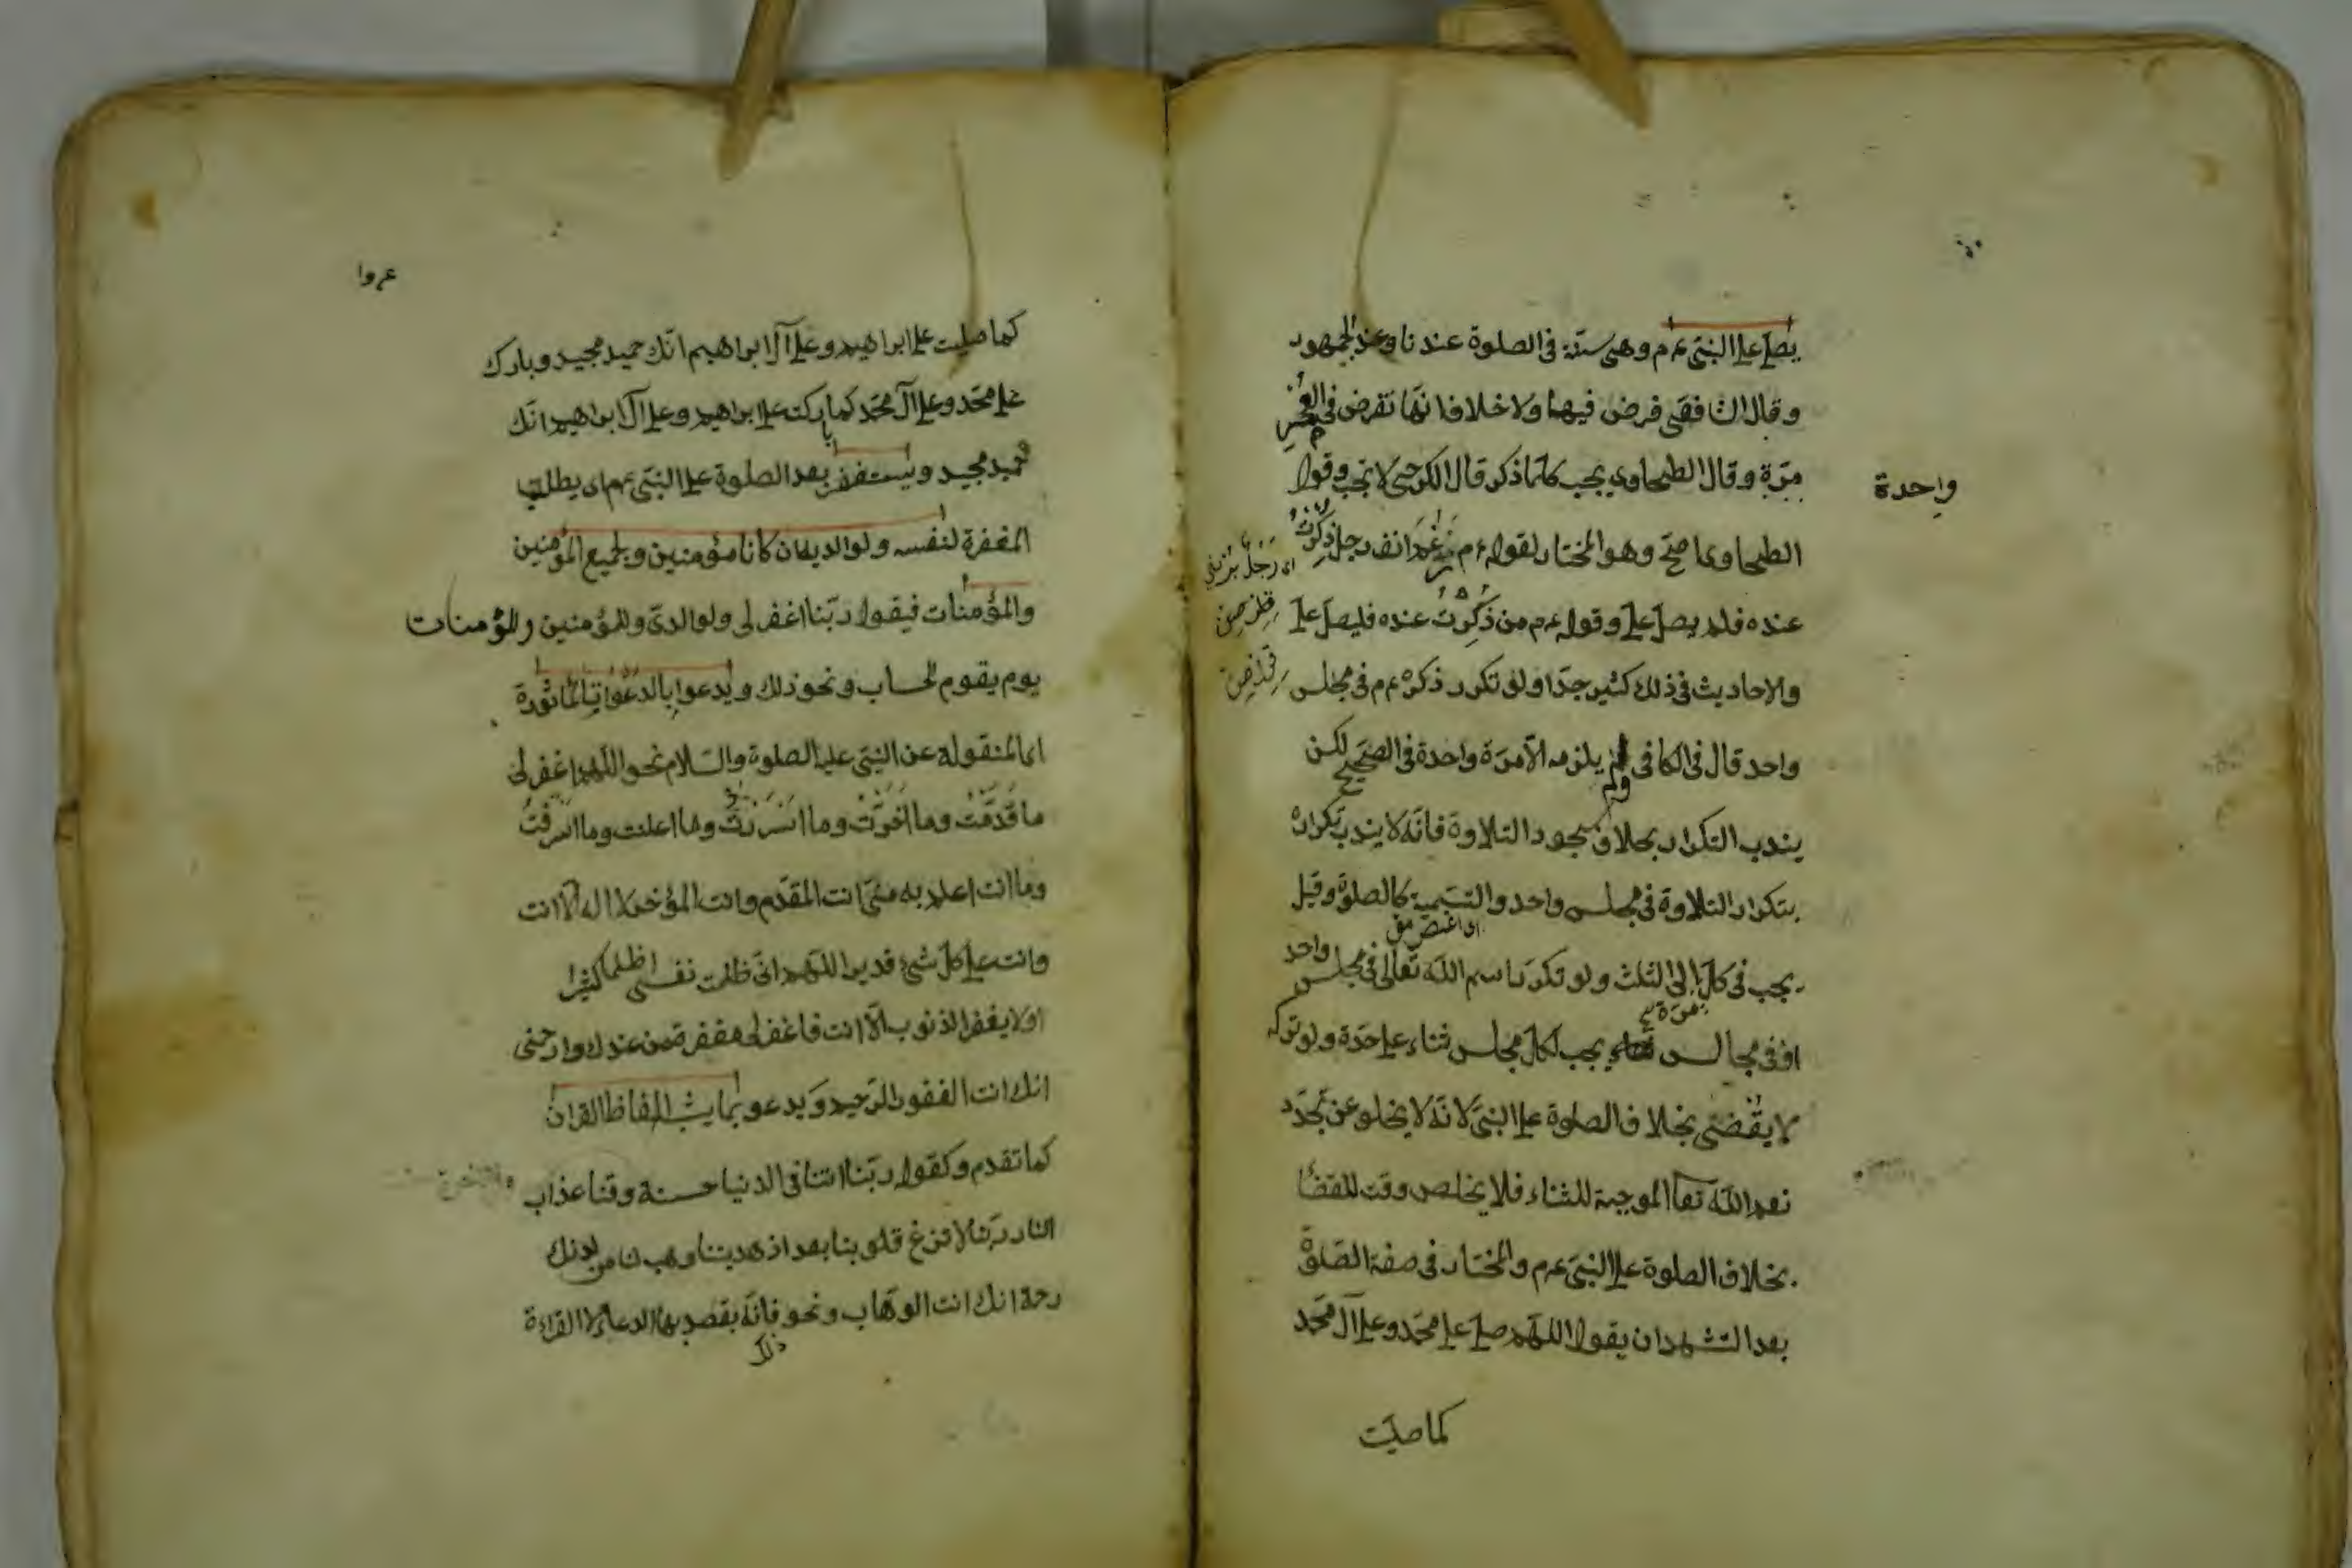 يصلى على النبى عم م وهى سنة فى الصلوة عندنا وعند الجمهور
وقال الشافعى فرض فيها ولا خلاف انها تفرض فى العمر
مرة وقال الطحاوى يجب كلما ذكر قال الكرخى لا تجب وقول
واحدة
الطحاوى اصح وهو المختار لقوله عم م رغم انف رجل ذكرت
اى رجل
عنده فلم يصل على وقوله عم م من ذكرت عنده فليصل على
والاحاديث فى ذلك كثير جدا ولو تكرر ذكره عم م فى مجلس
واحد قال فى الكافى لم يلزمه الا مرة واحدة فى الصحيح لكن
يندب التكرار بخلاف سجود التلاوة فانه لا يندب تكراره
بتكرار التلاوة فى مجلس واحد والتسمية كالصلوة وقيل
يجب فى كل الى الثلث ولو تكرر اسم الله تعالى فى مجلس واحد
مرة
او فى مجالس يجب لكل مجلس ثناء على حدة ولو تركه
لا يقضى بخلاف الصلوة على النبى لانه لا يخلو عن تجدد
نعم الله تعا الموجبة للثناء فلا يخلص وقت للقضا
بخلاف الصلوة على النبى عم م والمختار فى صفة الصلوة
بعد التشهد ان يقول اللهم صل على محمد وعلى آل محمد
كما صليت
كما صليت على ابراهيم وعلى آل ابراهيم انك حميد مجيد وبارك
على محمد وعلى آل محمد كما باركت على ابراهيم وعلى آل ابراهيم انك
حميد مجيد ويستغفر بعد الصلوة على النبى عم م اى يطلب
المغفرة لنفسه ولوالديه ان كانا مؤمنين ولجميع المؤمنين
والمؤمنات فيقول ربنا اغفر لى ولوالدى وللمؤمنين وللمؤمنات
يوم يقوم الحساب ونحو ذلك ويدعوا بالدعوات المأثورة
اى المنقولة عن النبى عليه الصلوة والسلام نحو اللهم اغفر لى
ما قدمت وما اخرت وما اسررت وما اعلنت وما اسرفت
وما انت اعلم به منى انت المقدم وانت المؤخر لا اله الا انت
وانت على كل شئ قدير اللهم انى ظلمت نفسى ظلما كثيرا
ولا يغفر الذنوب الا انت فاغفر لى مغفرة من عندك وارحمنى
انك انت الغفور الرحيم ويدعو بما يشبه الفاظ القران
كما تقدم وكقوله ربنا اتنا فى الدنيا حسنة وقنا عذاب
النار ربنا لا تزغ قلوبنا بعد اذ هديتنا وهب لنا من لدنك
رحمة انك انت الوهاب ونحو فانه يقصد بها الدعاء لا القراءة
ذلك